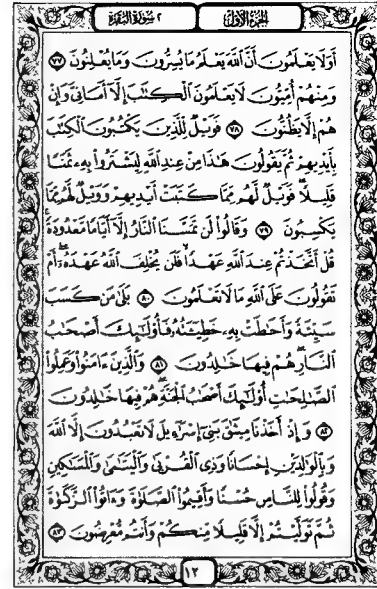 الجزء الأول
٢ سورة البقرة
أَوَلَا يَعْلَمُونَ أَنَّ ٱللَّهَ يَعْلَمُ مَا يُسِرُّونَ وَمَا يُعْلِنُونَ ٧٧
وَمِنْهُمْ أُمِّيُّونَ لَا يَعْلَمُونَ ٱلْكِتَٰبَ إِلَّآ أَمَانِىَّ وَإِنْ
هُمْ إِلَّا يَظُنُّونَ ٧٨ فَوَيْلٌ لِّلَّذِينَ يَكْتُبُونَ ٱلْكِتَٰبَ
بِأَيْدِيهِمْ ثُمَّ يَقُولُونَ هَٰذَا مِنْ عِندِ ٱللَّهِ لِيَشْتَرُوا۟ بِهِۦ ثَمَنًا
قَلِيلًا ۖ فَوَيْلٌ لَّهُم مِّمَّا كَتَبَتْ أَيْدِيهِمْ وَوَيْلٌ لَّهُم مِّمَّا
يَكْسِبُونَ ٧٩ وَقَالُوا۟ لَن تَمَسَّنَا ٱلنَّارُ إِلَّآ أَيَّامًا مَّعْدُودَةً ۚ
قُلْ أَتَّخَذْتُمْ عِندَ ٱللَّهِ عَهْدًا فَلَن يُخْلِفَ ٱللَّهُ عَهْدَهُۥٓ ۖ أَمْ
تَقُولُونَ عَلَى ٱللَّهِ مَا لَا تَعْلَمُونَ ٨٠ بَلَىٰ مَن كَسَبَ
سَيِّئَةً وَأَحَٰطَتْ بِهِۦ خَطِيٓـَٔتُهُۥ فَأُو۟لَٰٓئِكَ أَصْحَٰبُ
ٱلنَّارِ ۖ هُمْ فِيهَا خَٰلِدُونَ ٨١ وَٱلَّذِينَ ءَامَنُوا۟ وَعَمِلُوا۟
ٱلصَّٰلِحَٰتِ أُو۟لَٰٓئِكَ أَصْحَٰبُ ٱلْجَنَّةِ ۖ هُمْ فِيهَا خَٰلِدُونَ
٨٢ وَإِذْ أَخَذْنَا مِيثَٰقَ بَنِىٓ إِسْرَٰٓءِيلَ لَا تَعْبُدُونَ إِلَّا ٱللَّهَ
وَبِٱلْوَٰلِدَيْنِ إِحْسَانًا وَذِى ٱلْقُرْبَىٰ وَٱلْيَتَٰمَىٰ وَٱلْمَسَٰكِينِ
وَقُولُوا۟ لِلنَّاسِ حُسْنًا وَأَقِيمُوا۟ ٱلصَّلَوٰةَ وَءَاتُوا۟ ٱلزَّكَوٰةَ
ثُمَّ تَوَلَّيْتُمْ إِلَّا قَلِيلًا مِّنكُمْ وَأَنتُم مُّعْرِضُونَ ٨٣
١٢